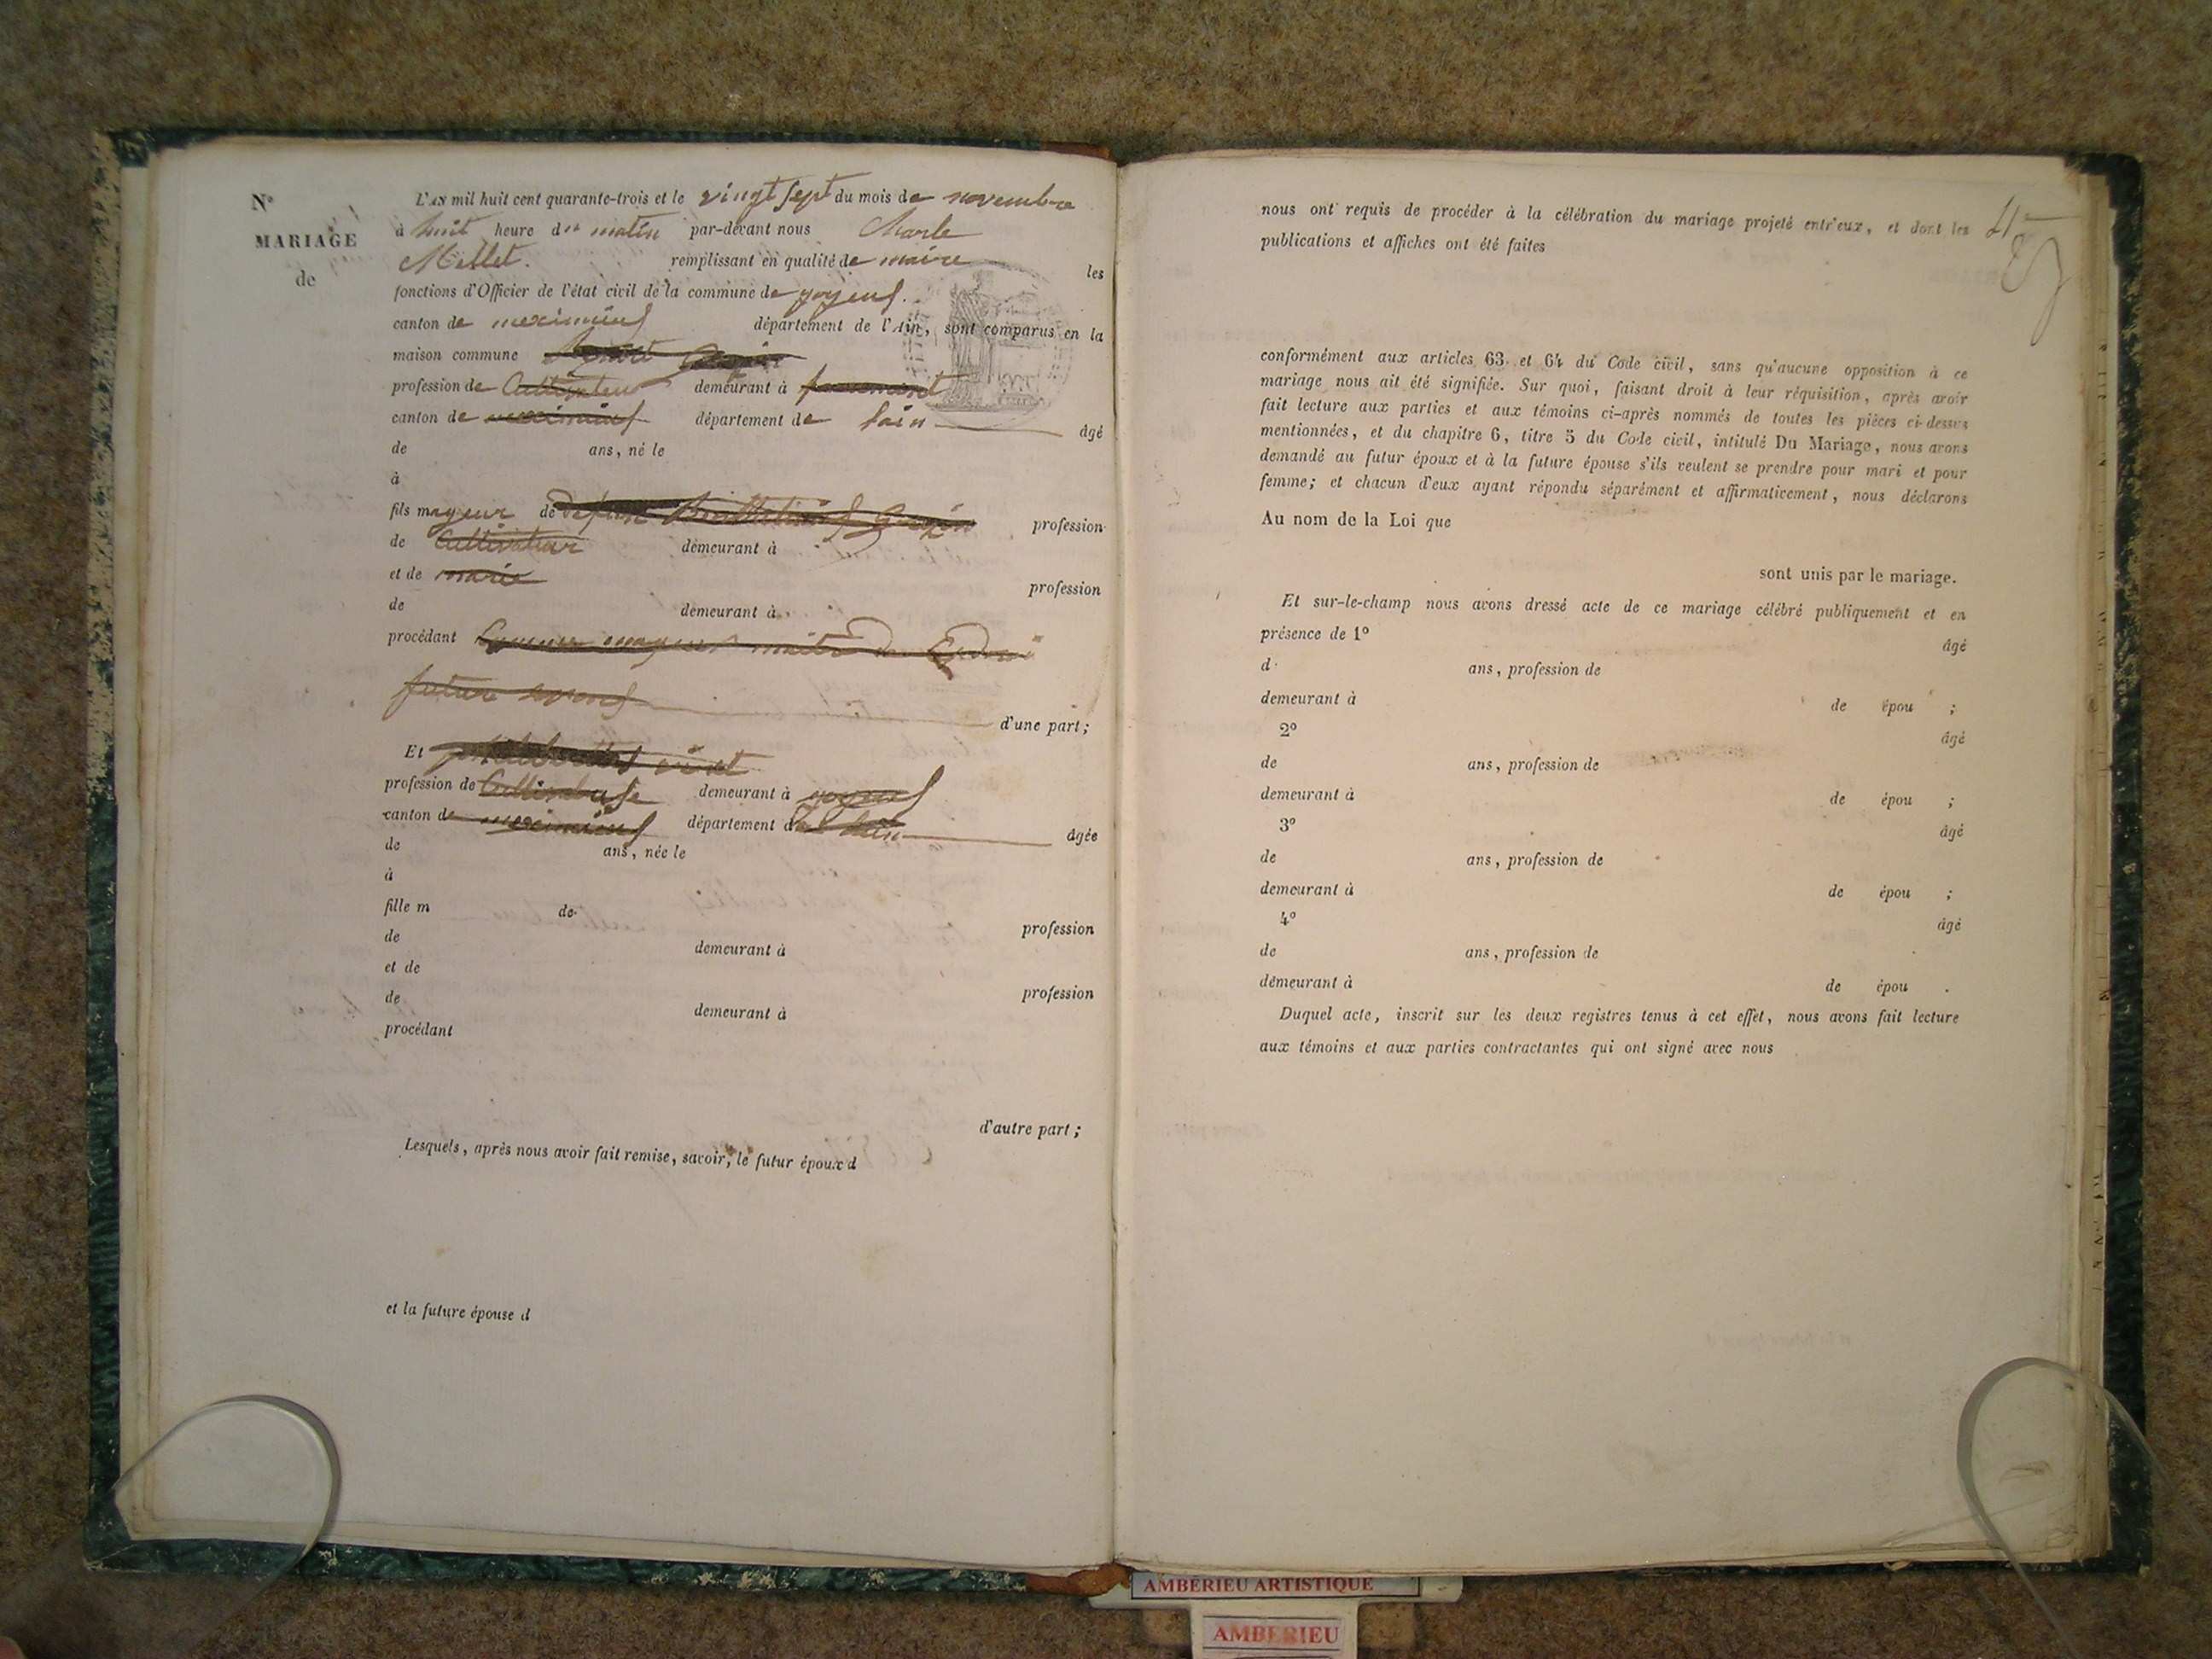 N°
MARIAGE
de
L'AN mil huit cent quarante-trois et le vingt sept du mois de novembre
à huit heure du matin par-devant nous Charle
Millet. remplissant en qualité de maire les
fonctions d'Officier de l'état civil de la commune de joyeux.
canton de meximieux département de l'Ain, sont comparus en la
maison commune
profession de Cultivateur demeurant à
canton de meximieux département de lain âgé
de ans, né le
à
fils mageur de profession
de Cultivateur demeurant à
et de marie profession
de demeurant à
procédant
future
d'une part;
Et
profession de demeurant à joyeux
canton de meximieux département de lain âgée
de ans, née le
à
fille m de profession
de demeurant à
et de profession
de demeurant à
procédant
d'autre part;
Lesquels, après nous avoir fait remise, savoir, le futur époux d
et la future épouse d
nous ont requis de procéder à la célébration du mariage projeté entr'eux, et dont les
publications et affiches ont été faites
conformément aux articles 63 et 64 du Code civil, sans qu'aucune opposition à ce
mariage nous ait été signifiée. Sur quoi, faisant droit à leur réquisition, après avoir
fait lecture aux parties et aux témoins ci-après nommés de toutes les pièces ci-dessus
mentionnées, et du chapitre 6, titre 5 du Code civil, intitulé Du Mariage, nous avons
demandé au futur époux et à la future épouse s'ils veulent se prendre pour mari et pour
femme; et chacun d'eux ayant répondu séparément et affirmativement, nous déclarons
Au nom de la Loi que
sont unis par le mariage.
Et sur-le-champ nous avons dressé acte de ce mariage célébré publiquement et en
présence de 1° âgé
d ans, profession de
demeurant à de épou ;
2° âgé
de ans, profession de
demeurant à de épou ;
3° âgé
de ans, profession de
demeurant à de épou ;
4° âgé
de ans, profession de
demeurant à de épou .
Duquel acte, inscrit sur les deux registres tenus à cet effet, nous avons fait lecture
aux témoins et aux parties contractantes qui ont signé avec nous
AMBÉRIEU ARTISTIQUE
AMBERIEU